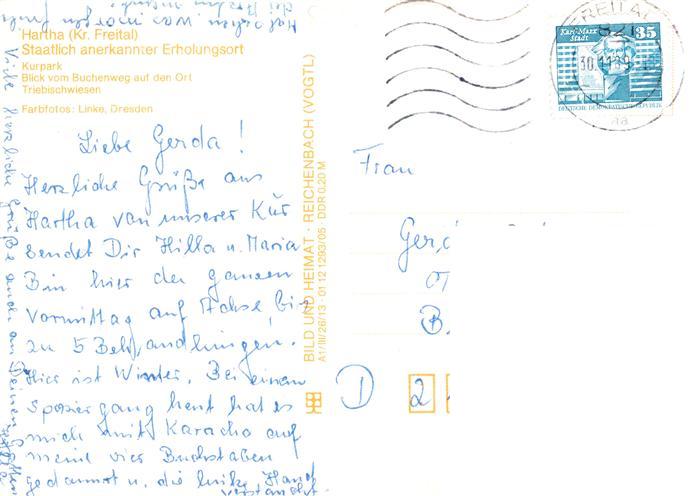 Hartha (Kr. Freital)
Staatlich anerkannter Erholungsort
Kurpark
Blick vom Buchenweg auf den Ort
Triebischwiesen
Farbfotos: Linke, Dresden
Liebe Gerda!
Herzliche Grüße aus
Hartha von unserer Kur
sendet Dir Hilla u. Maria
Bin hier den ganzen
Vormittag auf Achse bis
zu 5 Behandlungen!
Hier ist Winter. Bei einem
Spaziergang heut hat es
mich mit Karacho auf
meine vier Buchstaben
gedonnert u. die linke Hand
verstaucht.
Viele herzliche Grüße auch an Deinen
Hilla
BILD UND HEIMAT · REICHENBACH (VOGTL)
A1/III/26/13 · 01 12 1293/05 DDR 0,20 M
FREITAL
821
Karl-Marx-
Stadt
35
DEUTSCHE DEMOKRATISCHE REPUBLIK
Frau
Ger
B.
D 2